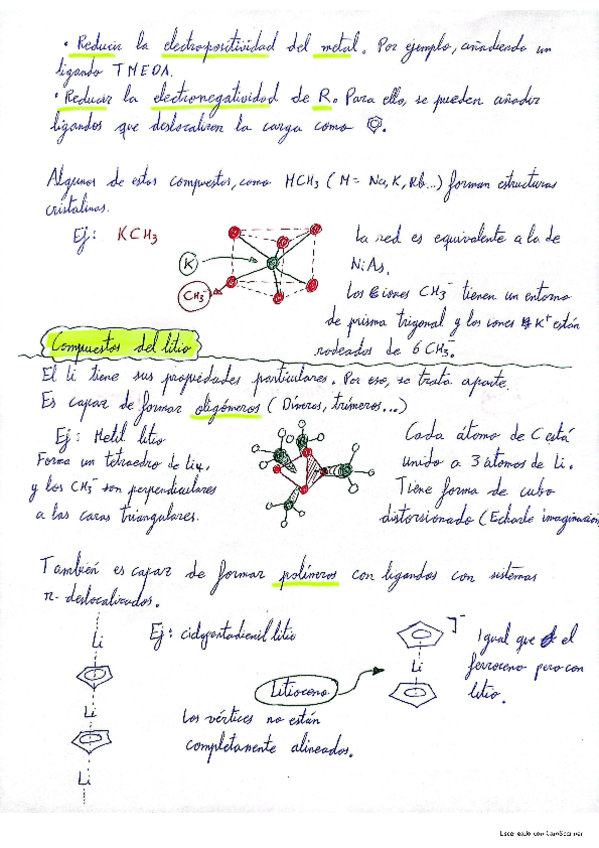 • Reducir la electropositividad del metal. Por ejemplo, añadiendo un
ligando TMEDA.
• Reducir la electronegatividad de R. Para ello, se pueden añadir
ligandos que deslocalicen la carga como
Algunos de estos compuestos, como MCH3 (M = Na, K, Rb...) forman estructuras
cristalinas.
Ej: KCH3
K
CH3-
La red es equivalente a la de
NiAs.
Los iones CH3- tienen un entorno
de prisma trigonal y los iones K+ están
rodeados de 6 CH3-.
Compuestos del litio
El Li tiene sus propiedades particulares. Por eso, se trata aparte.
Es capaz de formar oligómeros (Dímeros, trímeros...)
Ej: Metil litio
Forma un tetraedro de Li4,
y los CH3- son perpendiculares
a las caras triangulares.
Cada átomo de C está
unido a 3 átomos de Li.
Tiene forma de cubo
distorsionado (Echarle imaginación
También es capaz de formar polímeros con ligandos con sistemas
π-deslocalizados.
Li
Li
Li
Ej: ciclopentadienil litio
Litioceno
Los vértices no están
completamente alineados.
Li
]-
Igual que el
ferroceno pero con
litio.
Escaneado con CamScanner